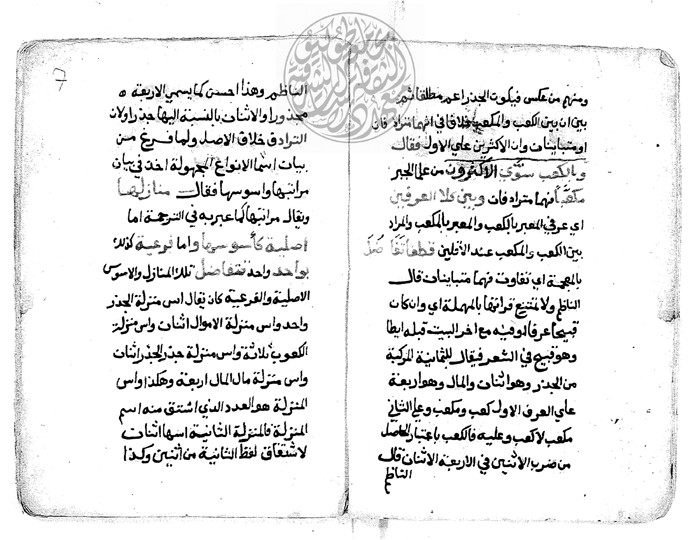 ومنهم من عكس فيكون الجذر اعم مطلقا ثم
بين ان بين الكعب والمكعب خلاف في انهما مترادفان
او متباينان وان الاكثرين علي الاول فقال
وبالكعب سوّى الاكثرون من علما الجبر
مكعبا فهما مترادفان وبين كلا العرفين
اي عرفي المعبر بالكعب والمعبر بالمكعب والمراد
بين الكعب والمكعب عند الاقلين قطعا تفاضل
بالمعجمة اي تفاوت فهما متباينان قال
الناظم ولا يمتنع قراتها بالمهملة اي وان كان
قبيحا عرفا لتوفيه مع اخر البيت قبله ايطا
وهو قبيح في الشعر فيقال للثمانية المركبة
من الجذر وهو اثنان والمال وهو اربعة
علي العرف الاول كعب ومكعب وعلي الثاني
مكعب لا كعب وعليه فالكعب باعتبار الحاصل
من ضرب الاثنين في الاربعة الاثنان قال
الناظم
الناظم وهذا احسن كما يسمي الاربعة
مجذورا والاثنان بالنسبة اليها جذرا ولان
الترادف خلاف الاصل ولما فرغ من
بيان اسما الانواع المجهولة اخذ في بيان
مراتبها واسوسها فقال منازلها
ويقال مراتبها كما عبر به في الترجمة اما
اصلية كأسوسها واما فرعية كذلك
بواحد واحد تتفاضل تلك المنازل والاسوس
الاصلية والفرعية كان يقال اس منزلة الجذر
واحد واس منزلة الاموال اثنان واس منزلة
الكعوب ثلاثة واس منزلة جذر الجذر اثنان
واس منزلة مال المال اربعة وهكذا واس
المنزلة هو العدد الذي اشتق منه اسم
المنزلة فالمنزلة الثانية اسها اثنان
لاشتقاق لفظ الثانية من اثنين وكذا